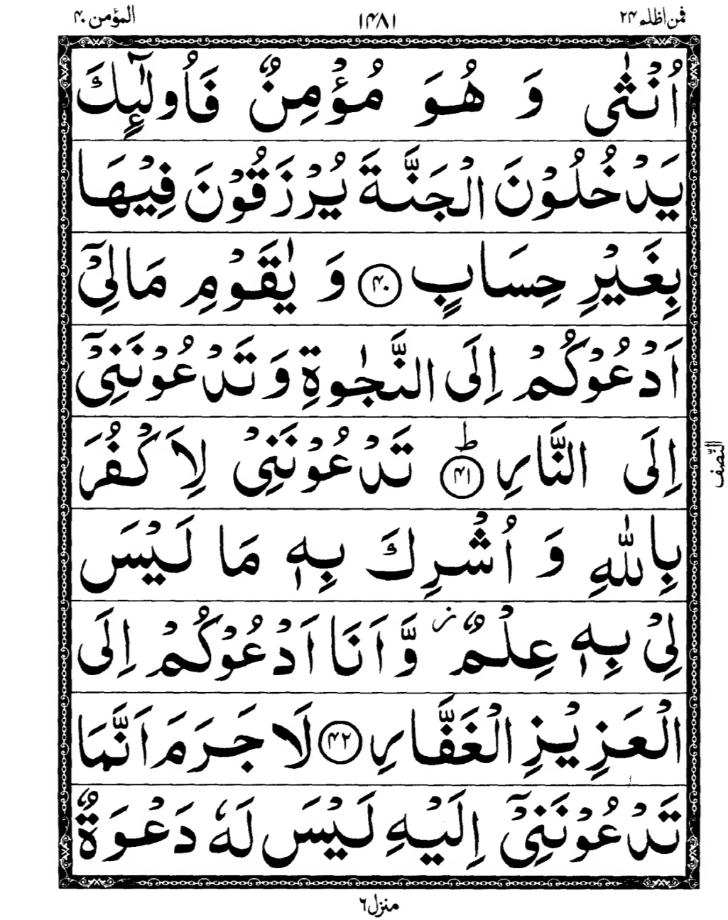 فمن اظلم ۲۴ ۱۴۸۱ المؤمن ۴۰
اُنْثٰى وَ هُوَ مُؤْمِنٌ فَاُولٰٓئِكَ
يَدْخُلُوْنَ الْجَنَّةَ يُرْزَقُوْنَ فِيْهَا
بِغَيْرِ حِسَابٍ ﴿۴۰﴾ وَ يٰقَوْمِ مَالِىْٓ
اَدْعُوْكُمْ اِلَى النَّجٰوةِ وَ تَدْعُوْنَنِىْٓ
اِلَى النَّارِ ﴿۴۱﴾ؕ تَدْعُوْنَنِىْ لِاَكْفُرَ
النّصف
بِاللّٰهِ وَ اُشْرِكَ بِهٖ مَا لَيْسَ
لِىْ بِهٖ عِلْمٌ ز وَّ اَنَا اَدْعُوْكُمْ اِلَى
الْعَزِيْزِ الْغَفَّارِ ﴿۴۲﴾ لَا جَرَمَ اَنَّمَا
تَدْعُوْنَنِىْٓ اِلَيْهِ لَيْسَ لَهٗ دَعْوَةٌ
منزل ۶